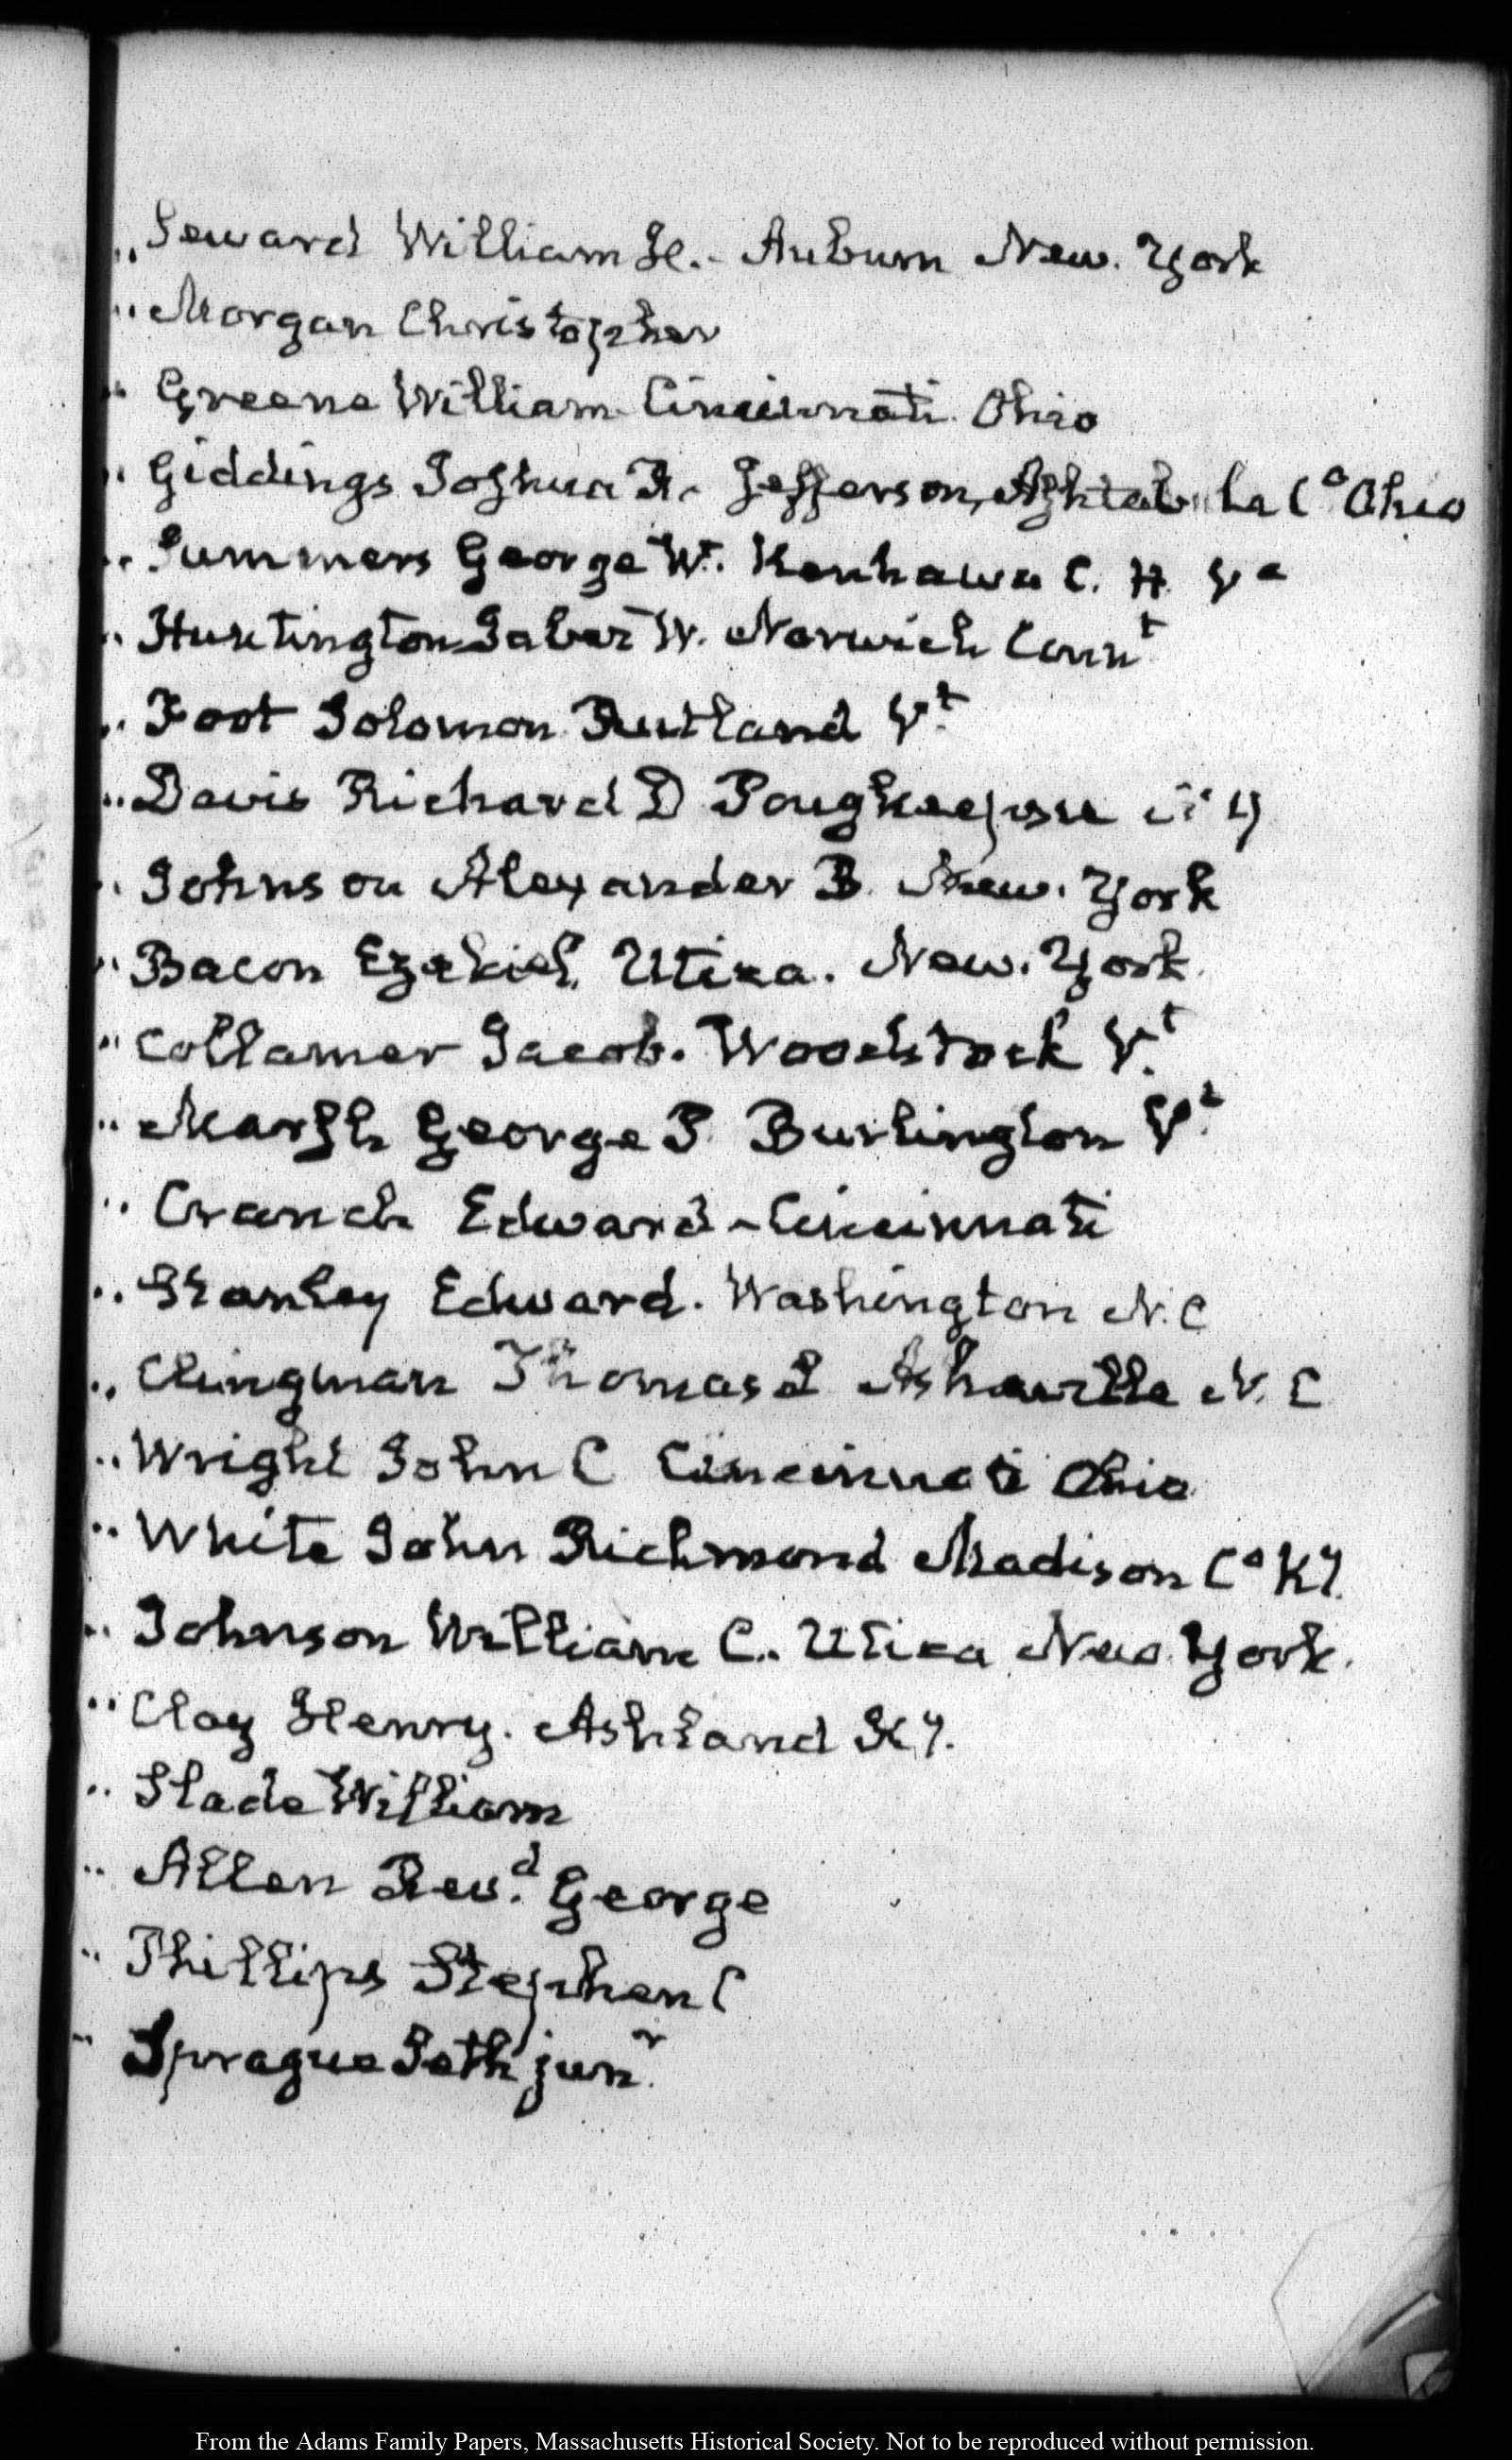 „ Seward William H.- Auburn New. York
" Morgan Christopher
" Greene William Cincinnati. Ohio
" Giddings Joshua R. Jefferson, Ashtabula Co Ohio
" Summers George W. Kenhawa C. H. Va
" Huntington Jabez W. Norwich Connt
" Foot Solomon Rutland V.t
" Davis Richard D Poughkeepsie N Y
" Johnson Alexander B. New. York
" Bacon Ezekiel, Utica. New. York
" Collamer Jacob. Woodstock V.t
" Marsh George P. Burlington V.t
" Cranch Edward - Cincinnati
" Stanley Edward. Washington N. C
" Clingman Thomas L Asheville N. C
" Wright John C Cincinnati Ohio
" White John Richmond Madison Co Ky.
" Johnson William C. Utica New York.
" Clay Henry. Ashland Ky.
" Slade William
" Allen Rev.d George
" Phillips Stephen C
" Sprague Seth jun.r
From the Adams Family Papers, Massachusetts Historical Society. Not to be reproduced without permission.